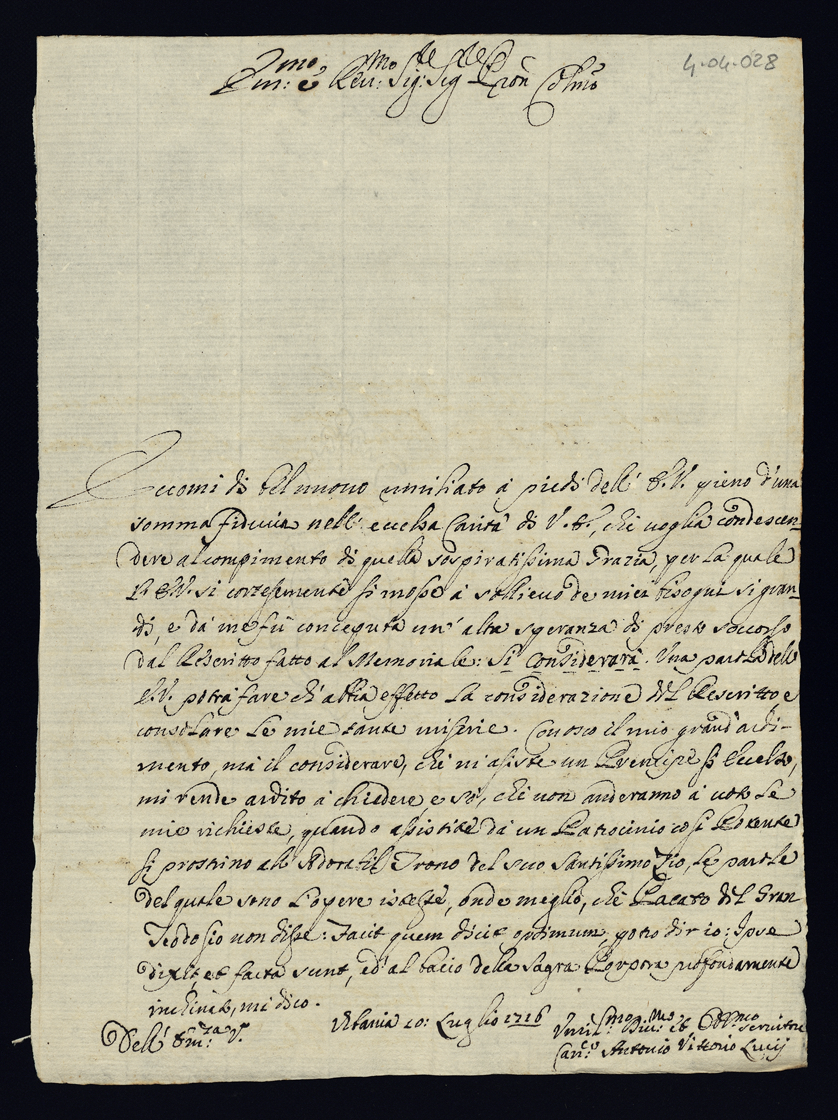 4-04-028
Em:mo e Rev:mo Sig:re Sig:re Pron Colmo
Eccomi di bel nuovo umiliato à piedi dell' E.V. pieno d'una
somma fiducia nell' eccelsa Carità di V.E., che voglia condescen-
dere al compimento di quella sospiratissima Grazia, per la quale
l'E.V. si cortesemente si mosse à sollievo de miei bisogni si gran-
di, e dà me fù conceputa un' alta speranza di presto soccorso
dal Rescritto fatto al Memoriale: Si Considerarà. Una parola dell'
E.V. potrà fare ch' abbia effetto la considerazione del Rescritto e
consolare le mie tante miserie. Conosco il mio grand' ardi-
mento, mà il considerare, che m' assiste un Prencipe si Eccelso,
mi rende ardito à chiedere e sò, che non anderanno à voto le
mie richieste, quando assistite dà un Patrocinio così Potente
si prostrino al Adorabil Trono del suo Santissimo Zio, le parole
del quale sono l'opere istesse, onde meglio, che Pacato del Gran
Teodosio non disse: Facit quem dicit optimum, potrò dir io: Ipse
dixit, et facta sunt, ed' al bacio della Sagra Porpora profondamente
inclinato, mi dico.
Dell' Em:za V.a
Urbania 10: Luglio 1716
Umil:mo Div:mo et Obb:mo servitore
Can:co Antonio Vittorio Lucij